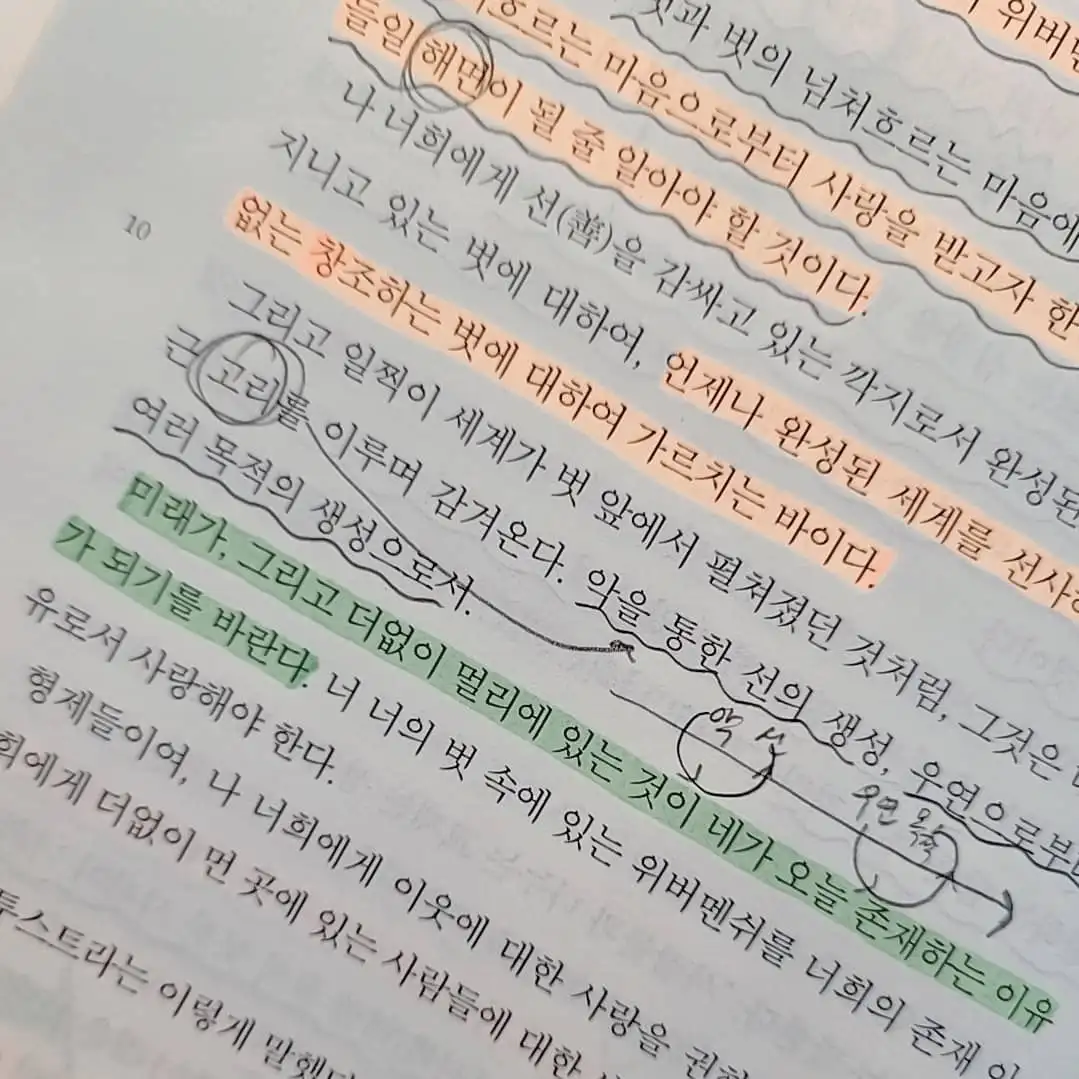 위버멘
벗과 벗의 넘쳐흐르는 마음에
흐르는 마음으로부터 사랑을 받고자 한
들일 해면이 될 줄 알아야 할 것이다.
나 너희에게 선(善)을 감싸고 있는 깍지로서 완성된
지니고 있는 벗에 대하여, 언제나 완성된 세계를 선사하
10
없는 창조하는 벗에 대하여 가르치는 바이다.
그리고 일찍이 세계가 벗 앞에서 펼쳐졌던 것처럼, 그것은
근 고리를 이루며 감겨온다. 악을 통한 선의 생성, 우연으로부
여러 목적의 생성으로서.
악
우연 목적
미래가, 그리고 더없이 멀리에 있는 것이 네가 오늘 존재하는 이유
가 되기를 바란다. 너 너의 벗 속에 있는 위버멘쉬를 너희의 존재
유로서 사랑해야 한다.
형제들이여, 나 너희에게 이웃에 대한 사랑을 권하
희에게 더없이 먼 곳에 있는 사람들에 대한
투스트라는 이렇게 말했다